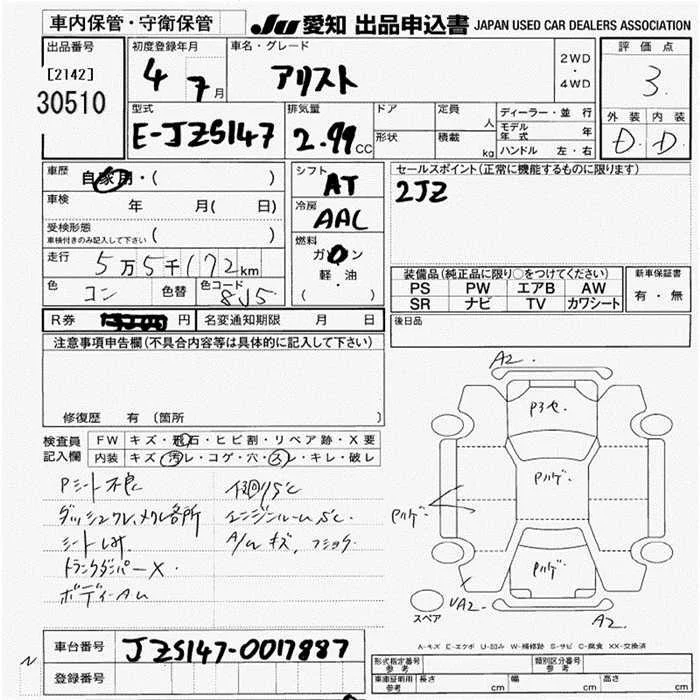 車内保管・守衛保管
JU 愛知 出品申込書 JAPAN USED CAR DEALERS ASSOCIATION
出品番号
[2142]
30510
初度登録年月
4 7月
車名・グレード
アリスト
2WD
・
4WD
評価点
3.
外装 内装
D. D.
型式
E-JZS147
排気量
2.99 CC
ドア
形状
定員 人
積載 kg
ディーラー・並 行
モデル年式 年
ハンドル 左・右
車歴
自家用・( )
車検 年 月( 日)
受検形態
車検付きのみ記入して下さい ( )
走行 5万5千172km
色 コン 色替 色コード 8J5
シフト
AT
冷房
AAC
燃料
ガソリン
軽・油
( ・ )
セールスポイント(正常に機能するものに限ります)
2JZ
装備品(純正品に限り○をつけてください)
PS PW エアB AW
SR ナビ TV カワシート
新車保証書
有・無
後日品
R券 円 名変通知期限 月 日
注意事項申告欄(不具合内容等は具体的に記入して下さい)
修復歴 有 (箇所 )
検査員
記入欄
FW キズ・飛石・ヒビ割・リペア跡・X要
内装 キズ・汚レ・コゲ・穴・スレ・キレ・破レ
Pシート不良
ダッシュワレ、メクレ各所
シートしみ
トランクダンパーX.
ボディーAU
エンジンルーム
A/Wキズ、
A2.
Pハゲ
Pハゲ.
Pハゲ
A2.
スペア
A-キズ E-エクボ U-凹み W-補修跡 S-サビ C-腐食 XX-交換済
車台番号 JZS147-0017887
登録番号
N
形式指定番号 参考
類別区分番号 参考
車庫証明用 参考 長さ cm 幅 cm 高さ cm